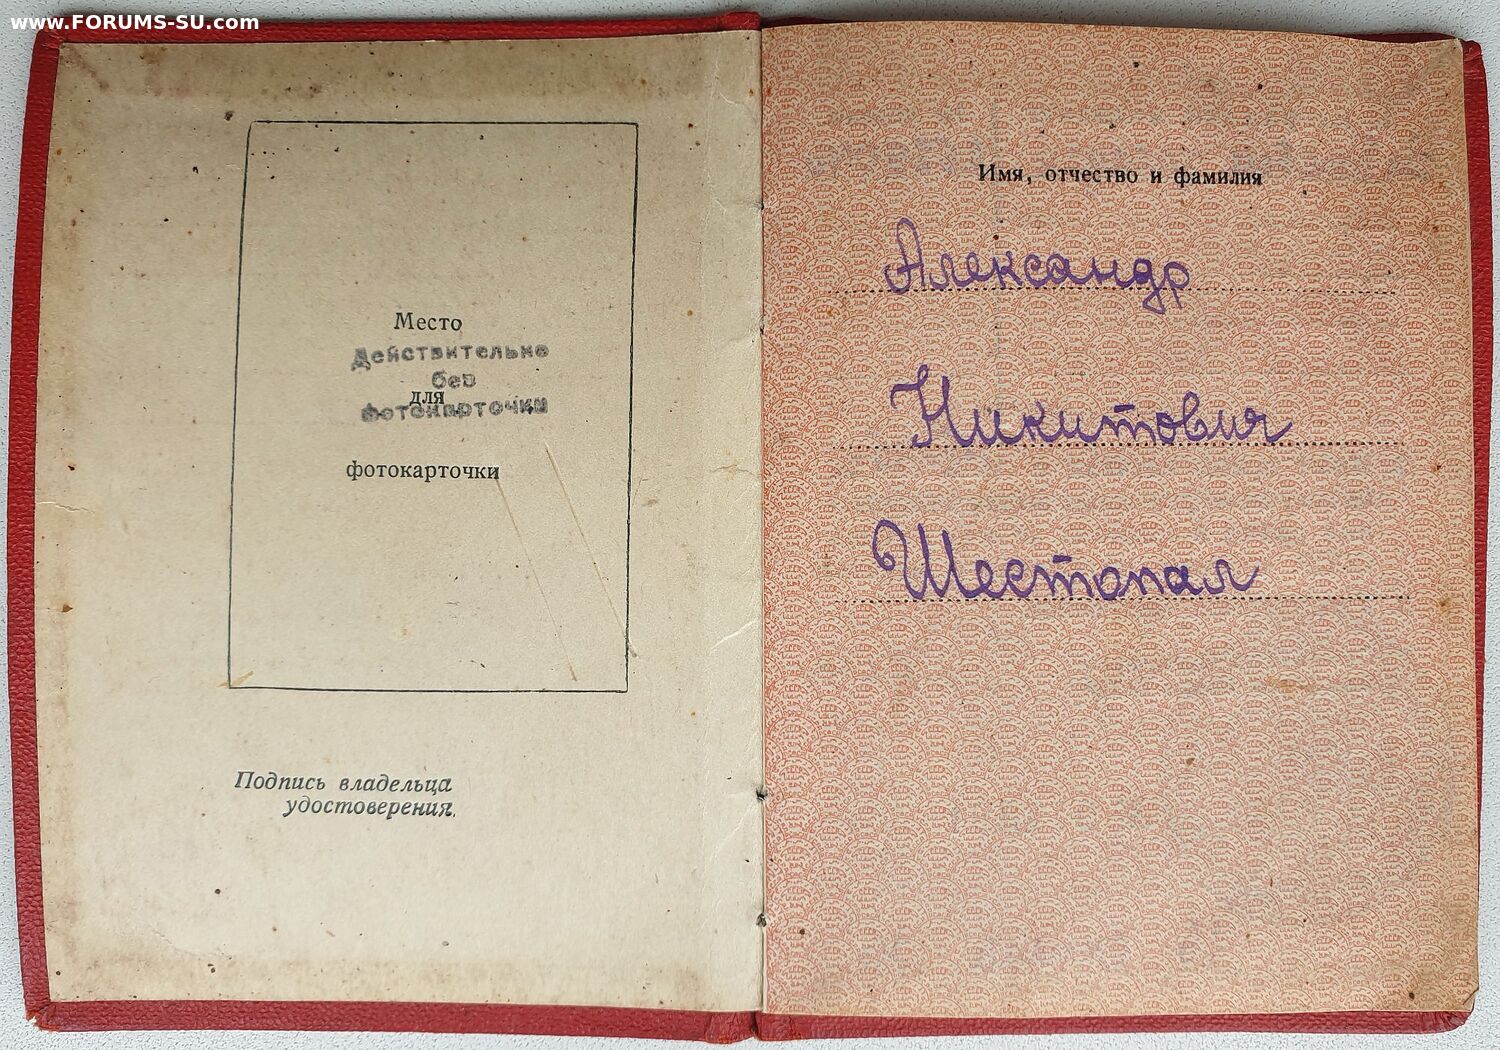 www.FORUMS-SU.com
Место
Действительно
без
для
фотокарточки
фотокарточки
Подпись владельца
удостоверения
Имя, отчество и фамилия
Александр
Никитович
Шестопал